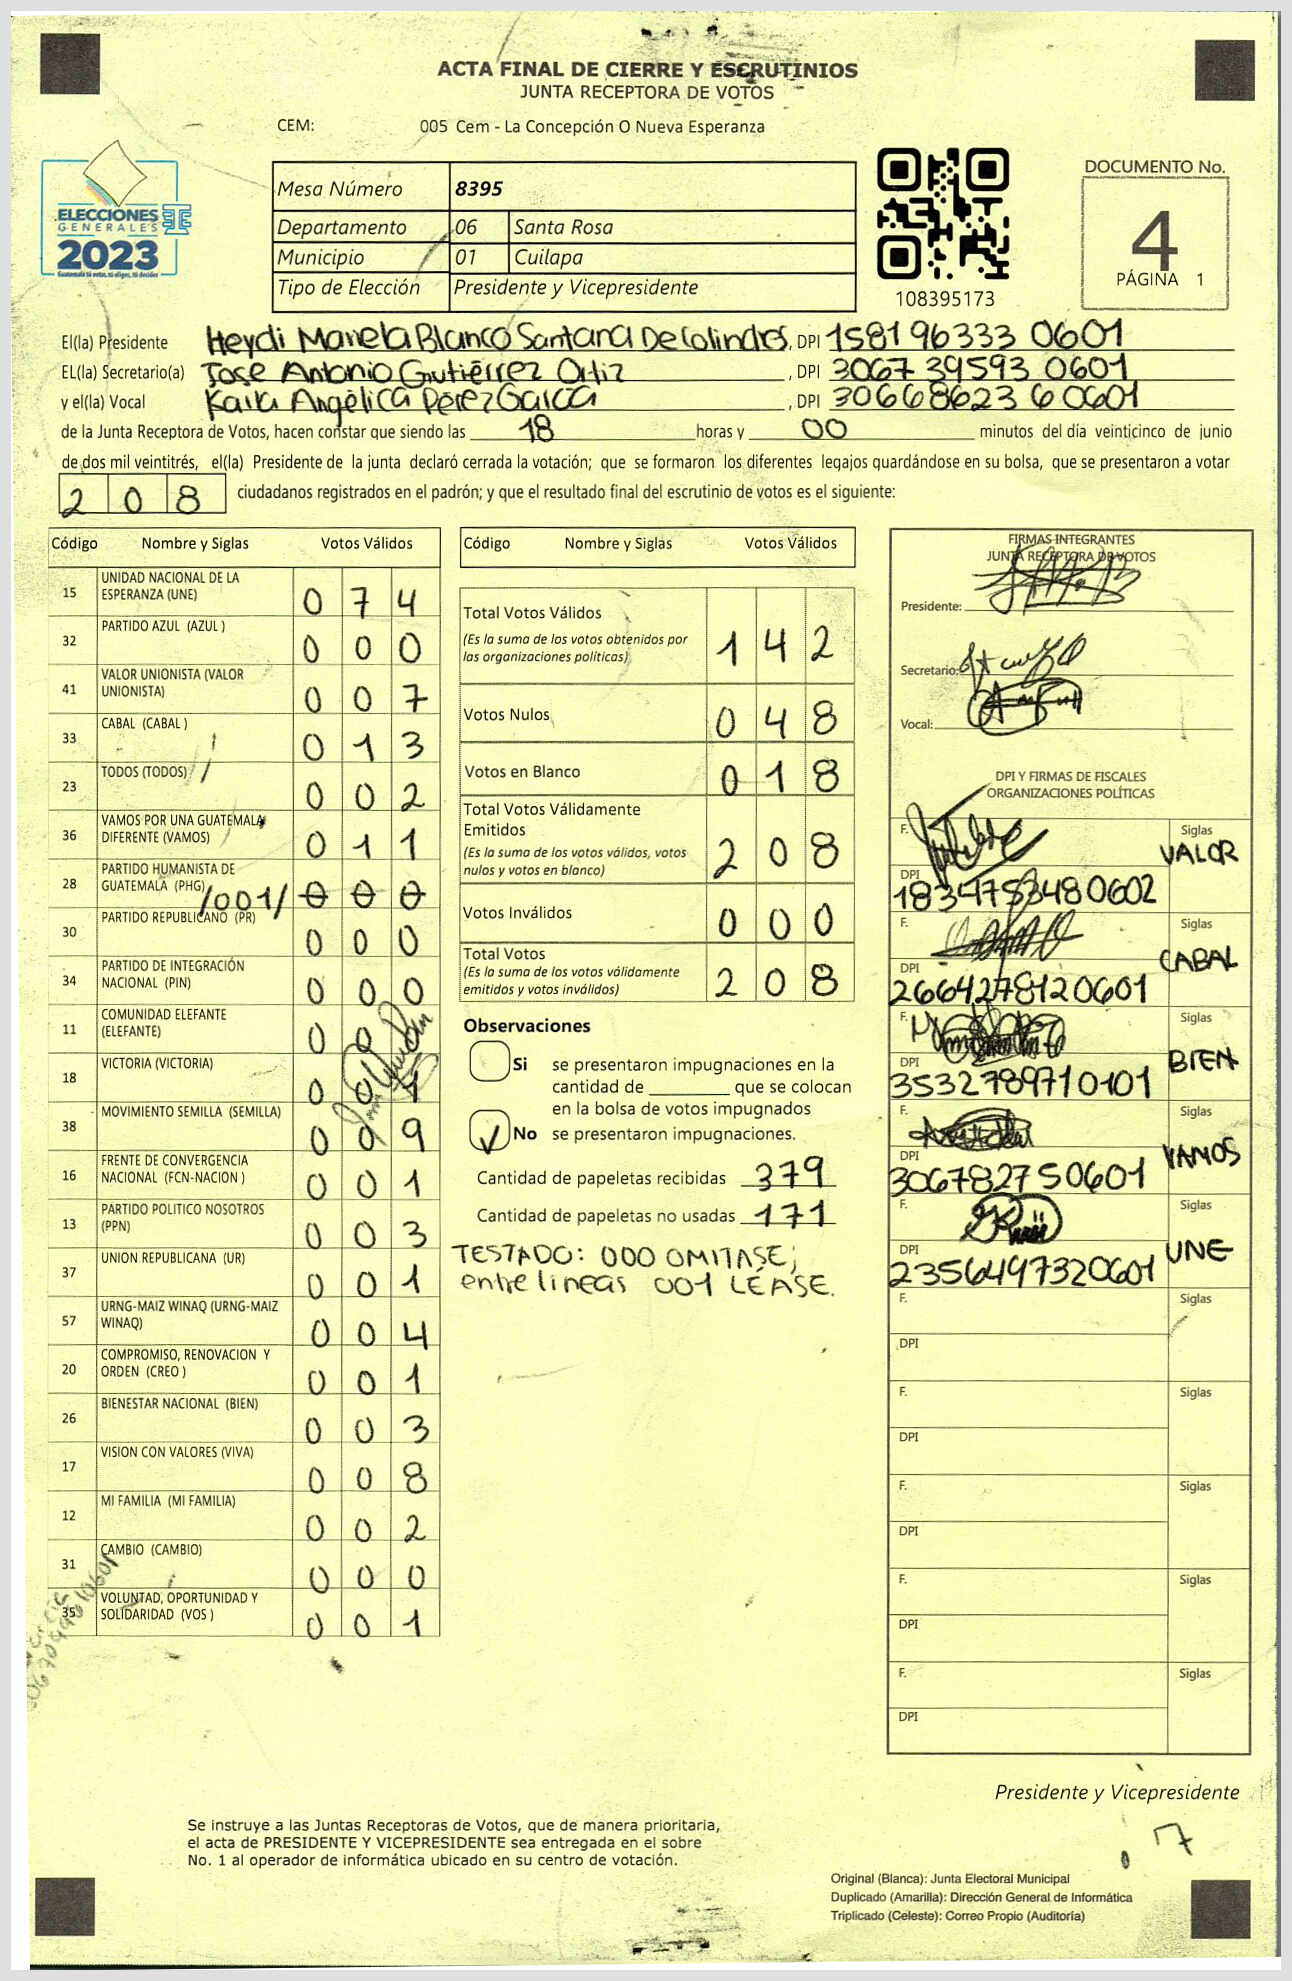 ACTA FINAL DE CIERRE Y ESCRUTINIOS
JUNTA RECEPTORA DE VOTOS
CEM: 005 Cem - La Concepción O Nueva Esperanza
ELECCIONES
GENERALES
2023
Guatemala tú votas, tú eliges, tú decides
Mesa Número 8395
Departamento 06 Santa Rosa
Municipio 01 Cuilapa
Tipo de Elección Presidente y Vicepresidente
108395173
DOCUMENTO No.
4
PÁGINA 1
El(la) Presidente Heydi Mariela Blanco Santana De Colindres, DPI 158196333 0601
EL(la) Secretario(a) Jose Antonio Gutiérrez Ortiz, DPI 3067 39593 0601
y el(la) Vocal Karla Angélica Pérez García, DPI 306686236 0601
de la Junta Receptora de Votos, hacen constar que siendo las 18 horas y 00 minutos del día veinticinco de junio
de dos mil veintitrés, el(la) Presidente de la junta declaró cerrada la votación; que se formaron los diferentes legajos guardándose en su bolsa, que se presentaron a votar
208 ciudadanos registrados en el padrón; y que el resultado final del escrutinio de votos es el siguiente:
Código Nombre y Siglas Votos Válidos
15 UNIDAD NACIONAL DE LA ESPERANZA (UNE) 0 7 4
32 PARTIDO AZUL (AZUL ) 0 0 0
41 VALOR UNIONISTA (VALOR UNIONISTA) 0 0 7
33 CABAL (CABAL ) 0 1 3
23 TODOS (TODOS) 0 0 2
36 VAMOS POR UNA GUATEMALA DIFERENTE (VAMOS) 0 1 1
28 PARTIDO HUMANISTA DE GUATEMALA (PHG) /001/ 0 0 0
30 PARTIDO REPUBLICANO (PR) 0 0 0
34 PARTIDO DE INTEGRACIÓN NACIONAL (PIN) 0 0 0
11 COMUNIDAD ELEFANTE (ELEFANTE) 0 0
18 VICTORIA (VICTORIA) 0 0 1
38 MOVIMIENTO SEMILLA (SEMILLA) 0 0 9
16 FRENTE DE CONVERGENCIA NACIONAL (FCN-NACION ) 0 0 1
13 PARTIDO POLITICO NOSOTROS (PPN) 0 0 3
37 UNION REPUBLICANA (UR) 0 0 1
57 URNG-MAIZ WINAQ (URNG-MAIZ WINAQ) 0 0 4
20 COMPROMISO, RENOVACION Y ORDEN (CREO ) 0 0 1
26 BIENESTAR NACIONAL (BIEN) 0 0 3
17 VISION CON VALORES (VIVA) 0 0 8
12 MI FAMILIA (MI FAMILIA) 0 0 2
31 CAMBIO (CAMBIO) 0 0 0
35 VOLUNTAD, OPORTUNIDAD Y SOLIDARIDAD (VOS ) 0 0 1
Código Nombre y Siglas Votos Válidos
Total Votos Válidos 1 4 2
(Es la suma de los votos obtenidos por
las organizaciones políticas)
Votos Nulos 0 4 8
Votos en Blanco 0 1 8
Total Votos Válidamente
Emitidos 2 0 8
(Es la suma de los votos válidos, votos
nulos y votos en blanco)
Votos Inválidos 0 0 0
Total Votos 2 0 8
(Es la suma de los votos válidamente
emitidos y votos inválidos)
Observaciones
Si se presentaron impugnaciones en la
cantidad de ________ que se colocan
en la bolsa de votos impugnados
No se presentaron impugnaciones.
Cantidad de papeletas recibidas 379
Cantidad de papeletas no usadas 171
TESTADO: 000 OMITASE;
entre lineas 001 LÉASE.
FIRMAS INTEGRANTES
JUNTA RECEPTORA DE VOTOS
Presidente:
Secretario:
Vocal:
DPI Y FIRMAS DE FISCALES
ORGANIZACIONES POLÍTICAS
F. Siglas VALOR
DPI 1834753480602
F. Siglas CABAL
DPI 2664278120601
F. Siglas BIEN
DPI 3532789710101
F. Siglas VAMOS
DPI 306782750601
F. Siglas UNE
DPI 2356497320601
F. Siglas
DPI
F. Siglas
DPI
F. Siglas
DPI
F. Siglas
DPI
F. Siglas
DPI
Presidente y Vicepresidente
Se instruye a las Juntas Receptoras de Votos, que de manera prioritaria,
el acta de PRESIDENTE Y VICEPRESIDENTE sea entregada en el sobre
No. 1 al operador de informática ubicado en su centro de votación.
Original (Blanca): Junta Electoral Municipal
Duplicado (Amarilla): Dirección General de Informática
Triplicado (Celeste): Correo Propio (Auditoría)